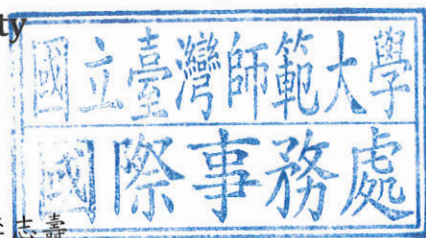 ty
國立臺灣師範大學
國際事務處
志壽